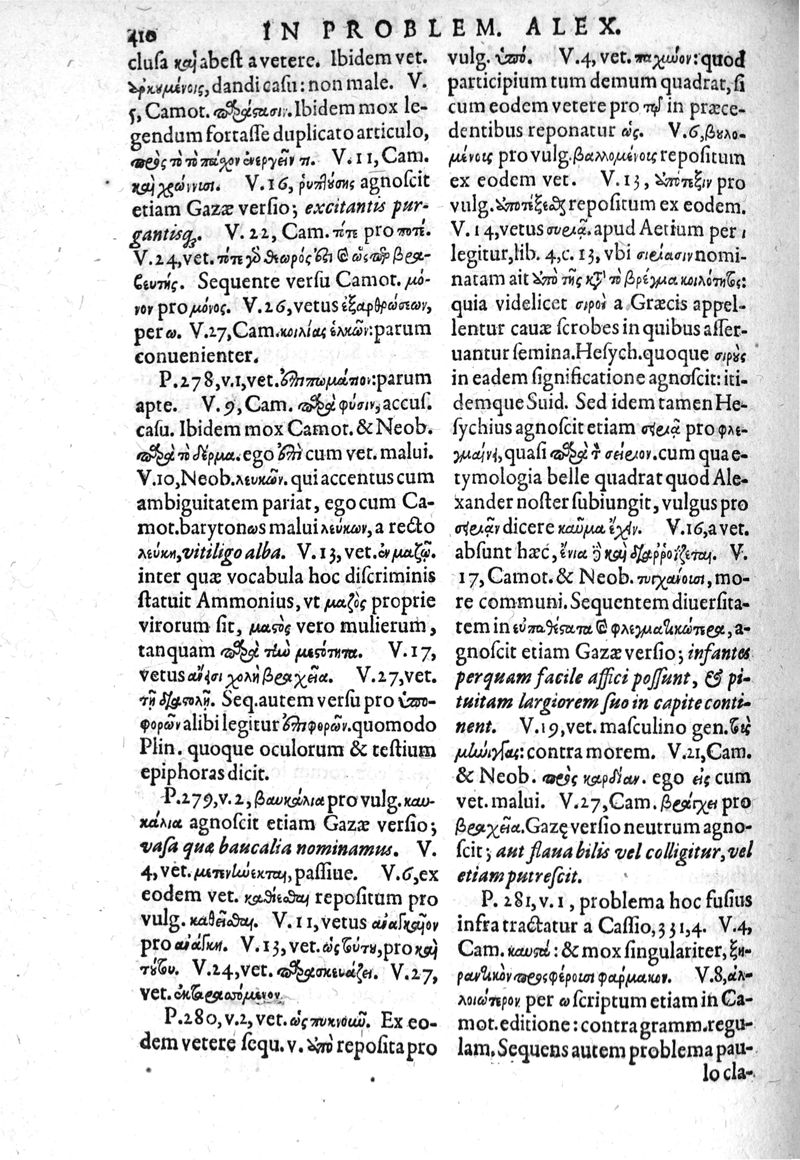 410 IN PROBLEM. ALEX.
clusa καὶ abest a vetere. Ibidem vet.
ἀρκυμένοις, dandi casu: non male. V.
5, Camot. παρέασιν. Ibidem mox le-
gendum fortasse duplicato articulo,
πρὸς τὸ τὸ πάχον ἐνεργεῖν π. V. 11, Cam.
καὶ χρώννισι. V. 16, ῥυπτούσης agnoscit
etiam Gazæ versio; excitantis pur-
gantisq. V. 22, Cam. πότε pro ποτέ.
V. 24, vet. πότε γὸ θεωρός ἐστι & ὥσπερ βρα-
βευτής. Sequente versu Camot. μό-
νον pro μόνος. V. 26, vetus ἐξαρθρώσεων,
per ω. V. 27, Cam. κοιλίας ἑλκῶν: parum
conuenienter.
P. 278, v. 1, vet. ἐπιπωμάπον: parum
apte. V. 9, Cam. παρὰ φύσιν, accus.
casu. Ibidem mox Camot. & Neob.
παρὰ τὸ δέρμα. ego ἐπὶ cum vet. malui.
V. 10, Neob. λευκῶν. qui accentus cum
ambiguitatem pariat, ego cum Ca-
mot. barytonως malui λεύκων, a recto
λεύκη, vitiligo alba. V. 13, vet. ἐν μαζῷ.
inter quæ vocabula hoc discriminis
statuit Ammonius, vt μαζὸς proprie
virorum sit, μαστὸς vero mulierum,
tanquam παρὰ τὴν μεστότητα. V. 17,
vetus αὔξησι χολὴ βραχεῖα. V. 27, vet.
τῇ διαστολῇ. Seq. autem versu pro ὑπο-
φορῶν alibi legitur ἐπιφορῶν. quomodo
Plin. quoque oculorum & testium
epiphoras dicit.
P. 279, v. 2, βαυκάλια pro vulg. καυ-
κάλια agnoscit etiam Gazæ versio;
vasa quæ baucalia nominamus. V.
4, vet. μεπηνώεκται, passiue. V. 6, ex
eodem vet. καθιεῖσθαι repositum pro
vulg. καθεῖσθαι. V. 11, vetus ἀναγκαῖον
pro ἀνάγκη. V. 13, vet. ὡς τούτου, pro καὶ
τούτου. V. 24, vet. παρασκευάζει. V. 27,
vet. ἐκταρασσόμενον.
P. 280, v. 2, vet. ὡς πυκνοιῶ. Ex eo-
dem vetere sequ. v. ὑπὸ reposita pro
vulg. ὑπό. V. 4, vet. παχιῶον: quod
participium tum demum quadrat, si
cum eodem vetere pro τῷ in præce-
dentibus reponatur ὡς. V. 6, βυλο-
μένοις pro vulg. βαλλομένοις repositum
ex eodem vet. V. 13, ὑπόπεξιν pro
vulg. ὑποπέξεως repositum ex eodem.
V. 14, vetus συειᾷ. apud Aetium per ι
legitur, lib. 4, c. 13, vbi σιείασιν nomi-
natam ait ὑπὸ τῆς κατὰ τὸ βρέγμα κοιλότητος:
quia videlicet σιροὶ a Græcis appel-
lentur cauæ scrobes in quibus asser-
uantur semina. Hesych. quoque σιροὺς
in eadem significatione agnoscit: iti-
demque Suid. Sed idem tamen He-
sychius agnoscit etiam σειριᾷ pro φλε-
γμαίνει, quasi παρὰ τὸ σείειον. cum qua e-
tymologia belle quadrat quod Ale-
xander noster subiungit, vulgus pro
σειριᾶν dicere καῦμα ἔχειν. V. 16, a vet.
absunt hæc, ἔνια δὲ καὶ διαῤῥοΐζεται. V.
17, Camot. & Neob. τυγχάνοισι, mo-
re communi. Sequentem diuersita-
tem in εὐπαθέσατα & φλεγματικώτερα, a-
gnoscit etiam Gazæ versio; infantes
perquam facile affici possunt, & pi-
tuitam largiorem suo in capite conti-
nent. V. 19, vet. masculino gen. τοὺς
μήνιγγας: contra morem. V. 21, Cam.
& Neob. πρὸς καρδίαν. ego εἰς cum
vet. malui. V. 27, Cam. βράγχει pro
βραχεῖα. Gazę versio neutrum agno-
scit; aut flaua bilis vel colligitur, vel
etiam putrescit.
P. 281, v. 1, problema hoc fusius
infra tractatur a Cassio, 331, 4. V. 4,
Cam. καυστά: & mox singulariter, ξη-
ραντικὸν προσφέροισι φάρμακον. V. 8, ἀλ-
λοιώτερον per ω scriptum etiam in Ca-
mot. editione: contra gramm. regu-
lam. Sequens autem problema pau-
lo cla-